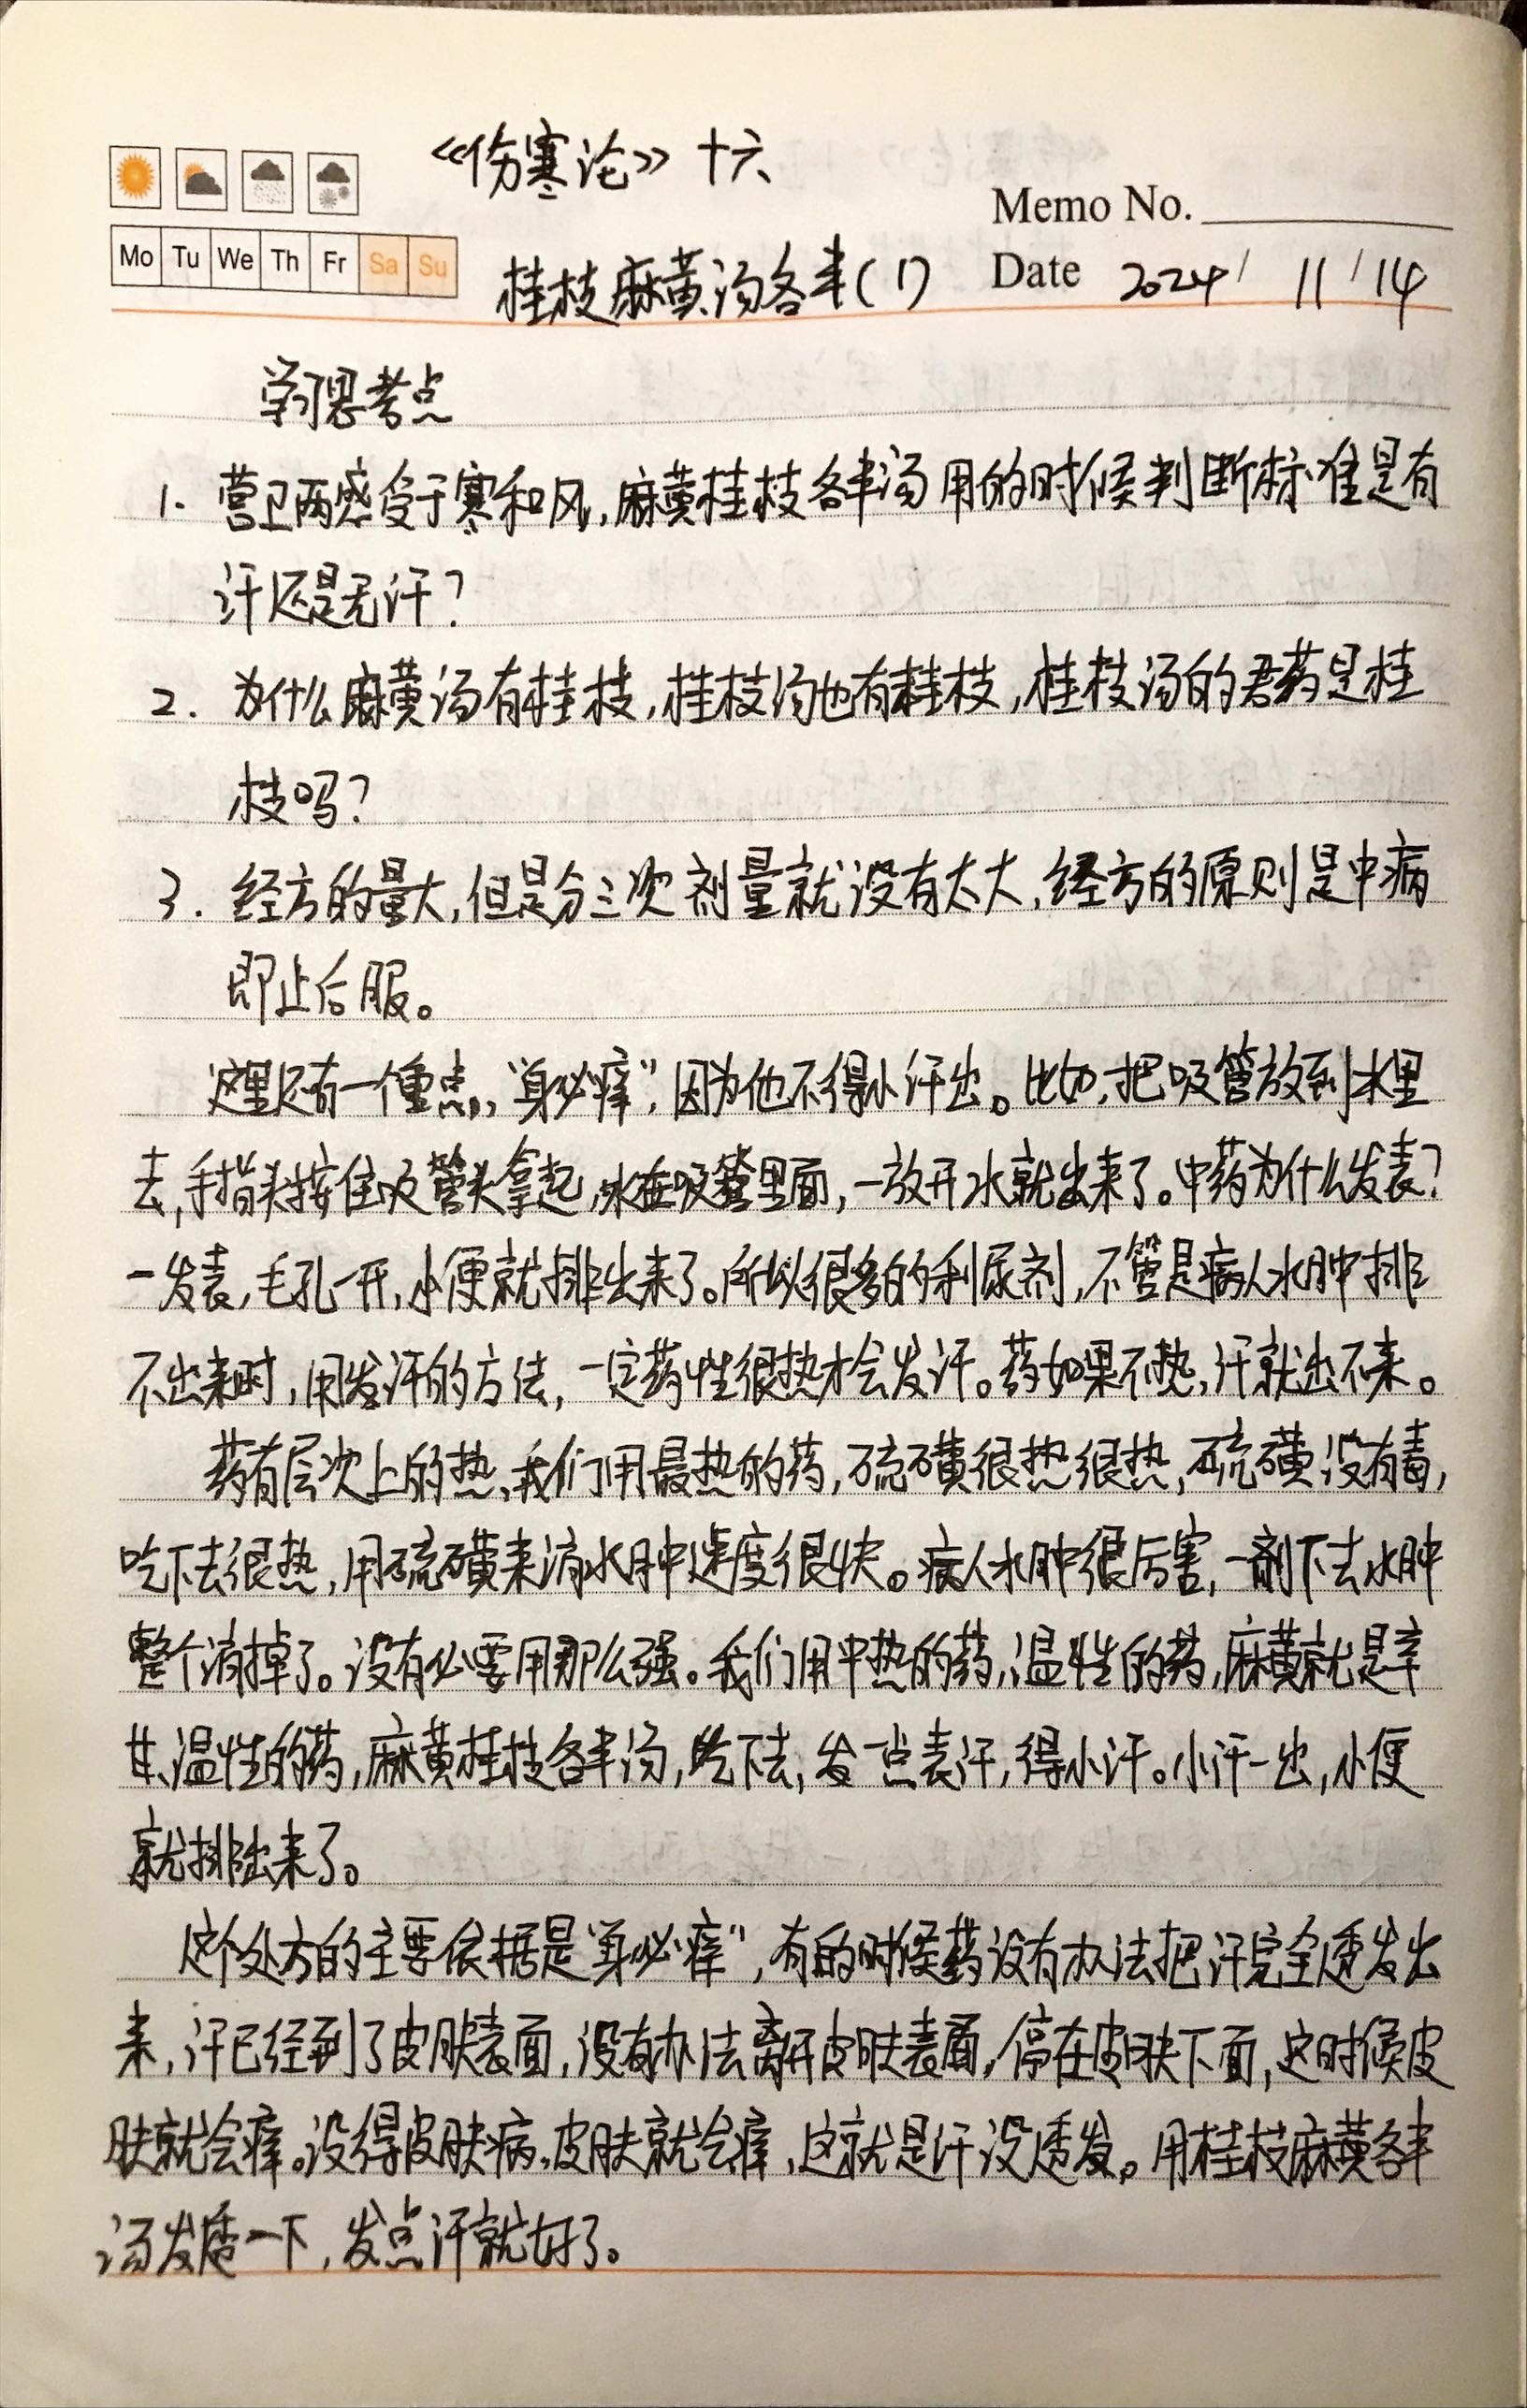 《伤寒论》十六
Memo No.
Mo Tu We Th Fr Sa Su
桂枝麻黄汤各半(1)
Date 2024/ 11/14
学习思考点
1. 营卫两感受于寒和风,麻黄桂枝各半汤用的时候判断标准是有
汗还是无汗?
2. 为什么麻黄汤有桂枝,桂枝汤也有桂枝,桂枝汤的君药是桂
枝吗?
3. 经方的量大,但是分三次剂量就没有太大,经方的原则是中病
即止后服。
这里还有一个重点,“身必痒”,因为他不得小汗出。比如,把吸管放到水里
去,手指头按住吸管头拿起,水在吸管里面,一放开水就出来了。中药为什么发表?
一发表,毛孔一开,小便就排出来了。所以很多的利尿剂,不管是病人水肿排
不出来时,用发汗的方法,一定药性很热才会发汗。药如果不热,汗就出不来。
药有层次上的热,我们用最热的药,硫磺很热很热,硫磺没有毒,
吃下去很热,用硫磺来消水肿速度很快。病人水肿很厉害,一剂下去水肿
整个消掉了。没有必要用那么强。我们用中热的药,温性的药,麻黄就是辛
甘、温性的药,麻黄桂枝各半汤,吃下去,发一点表汗,得小汗。小汗一出,小便
就排出来了。
这个处方的主要依据是“身必痒”,有的时候药没有办法把汗完全透发出
来,汗已经到了皮肤表面,没有办法离开皮肤表面,停在皮肤下面,这时候皮
肤就会痒。没得皮肤病,皮肤就会痒,这就是汗没透发。用桂枝麻黄各半
汤发透一下,发点汗就好了。